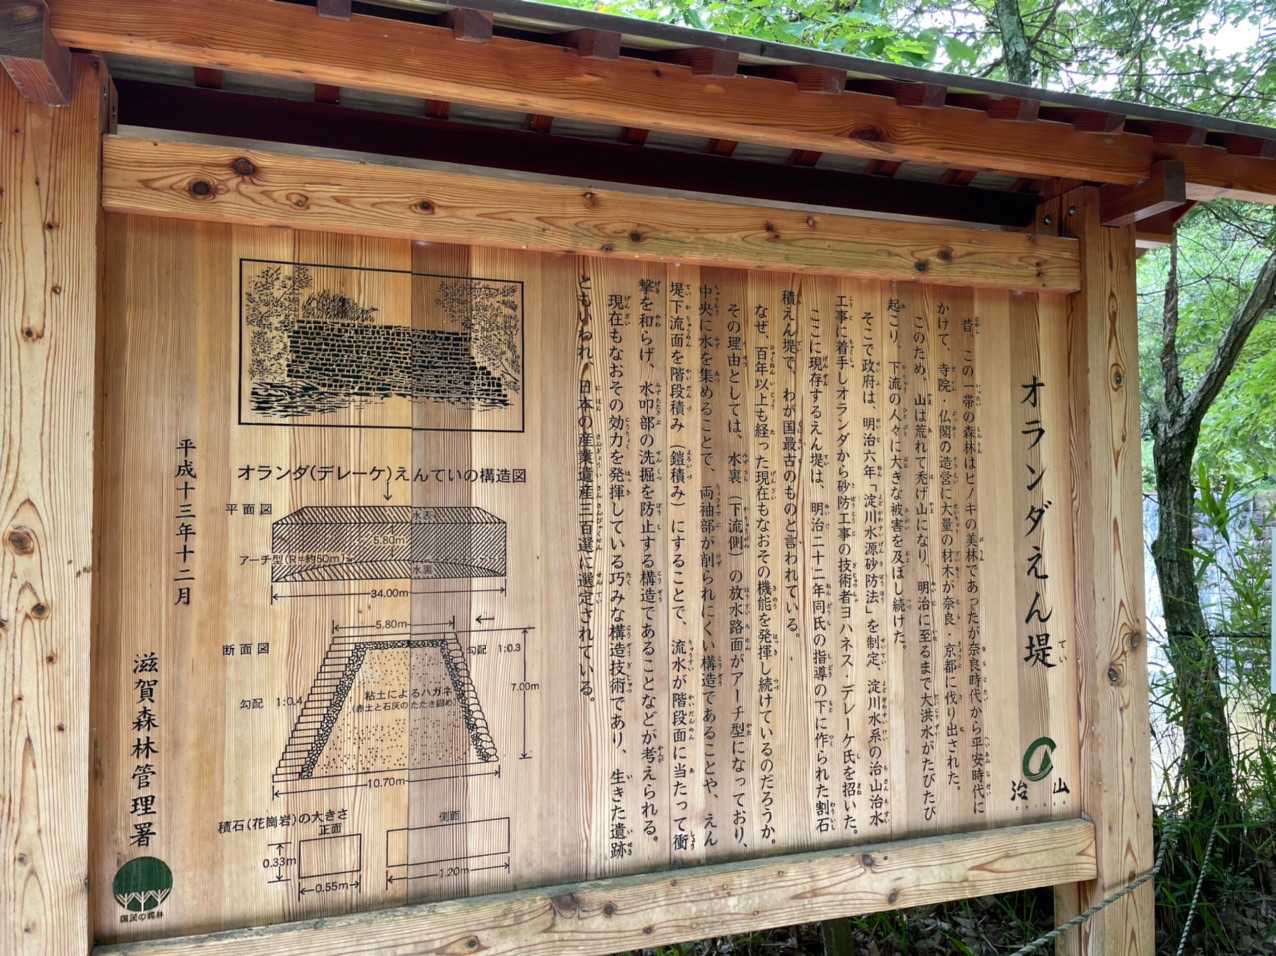 オランダえん堤
治山
昔、この一帯の森林はヒノキの美林であったが奈良時代から平安時代に
かけて、寺院・仏閣の造営に大量の材木が奈良・京都に伐り出された。
このため、山は荒れて禿げ山になり、明治に至るまで大洪水がたびたび
起こり下流の人々に大きな被害を及ぼし続けた。
そこで政府は、明治六年「淀川水源砂防法」を制定、淀川水系の治山治水
工事に着手しオランダから砂防工事の技術者ヨハネス・デレーケ氏を招いた。
ここに現存するえん堤は、明治二十二年同氏の指導の下に作られた割石
積えん堤で、わが国最古のものと言われている。
なぜ、百年以上も経った現在もなおその機能を発揮し続けているのだろうか。
その理由としては、水裏(下流側)の放水路面がアーチ型になっており、
中央に水を集めることで、両袖部が削られにくい構造であることや、えん
堤下流面を階段積み(鎧積み)にすることで、流水が階段面に当たって衝
撃を和らげ、水叩部の先掘を防止する構造であることなどが考えられる。
現在もなおその効力を発揮している巧みな構造技術であり、生きた遺跡
ともいわれ、日本の産業遺産三百選に選定されている。
オランダ(デレーケ)えんていの構造図
平面図
水表
5.80m
アーチ型(R=約50m)
水裏
34.00m
断面図
5.80m
勾配 1:0.3
勾配 1:0.4
粘土によるハガネ
(赤土と石灰のたたき固め)
7.00m
10.70m
積石(花崗岩)の大きさ
正面
側面
0.33m
0.55m
1.20m
平成十三年十二月
滋賀森林管理署
国民の森林